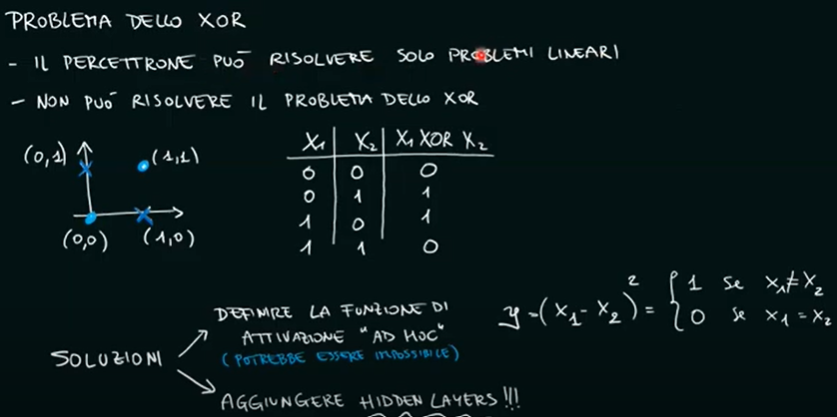 PROBLEMA DELLO XOR
- IL PERCETTRONE PUÒ RISOLVERE SOLO PROBLEMI LINEARI
- NON PUÒ RISOLVERE IL PROBLEMA DELLO XOR
(0,1)
(1,1)
(0,0)
(1,0)
X1 X2 X1 XOR X2
0 0 0
0 1 1
1 0 1
1 1 0
SOLUZIONI
DEFINIRE LA FUNZIONE DI
ATTIVAZIONE "AD HOC"
(POTREBBE ESSERE IMPOSSIBILE)
AGGIUNGERE HIDDEN LAYERS!!!
y = (X1 - X2)² = { 1 se X1≠X2
0 se X1 = X2